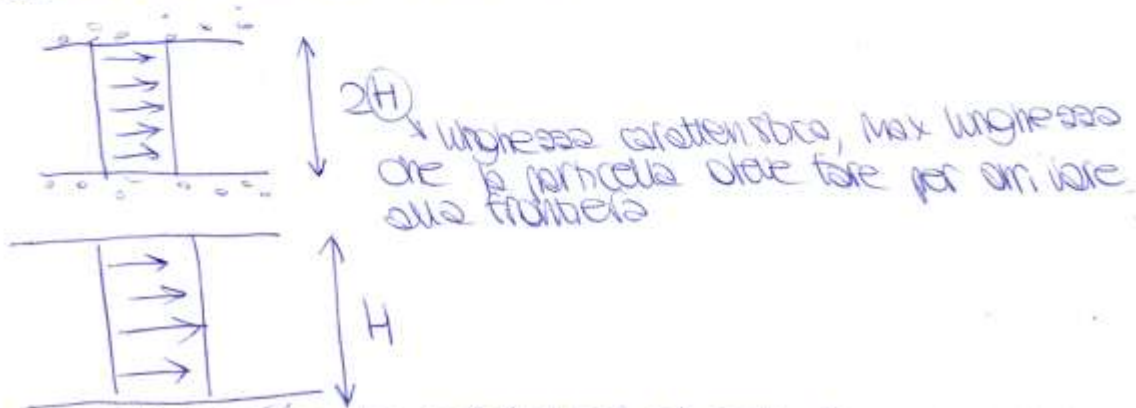 2H
lunghezza caratteristica, max lunghezza
che la particella deve fare per arrivare
alla frontiera
H